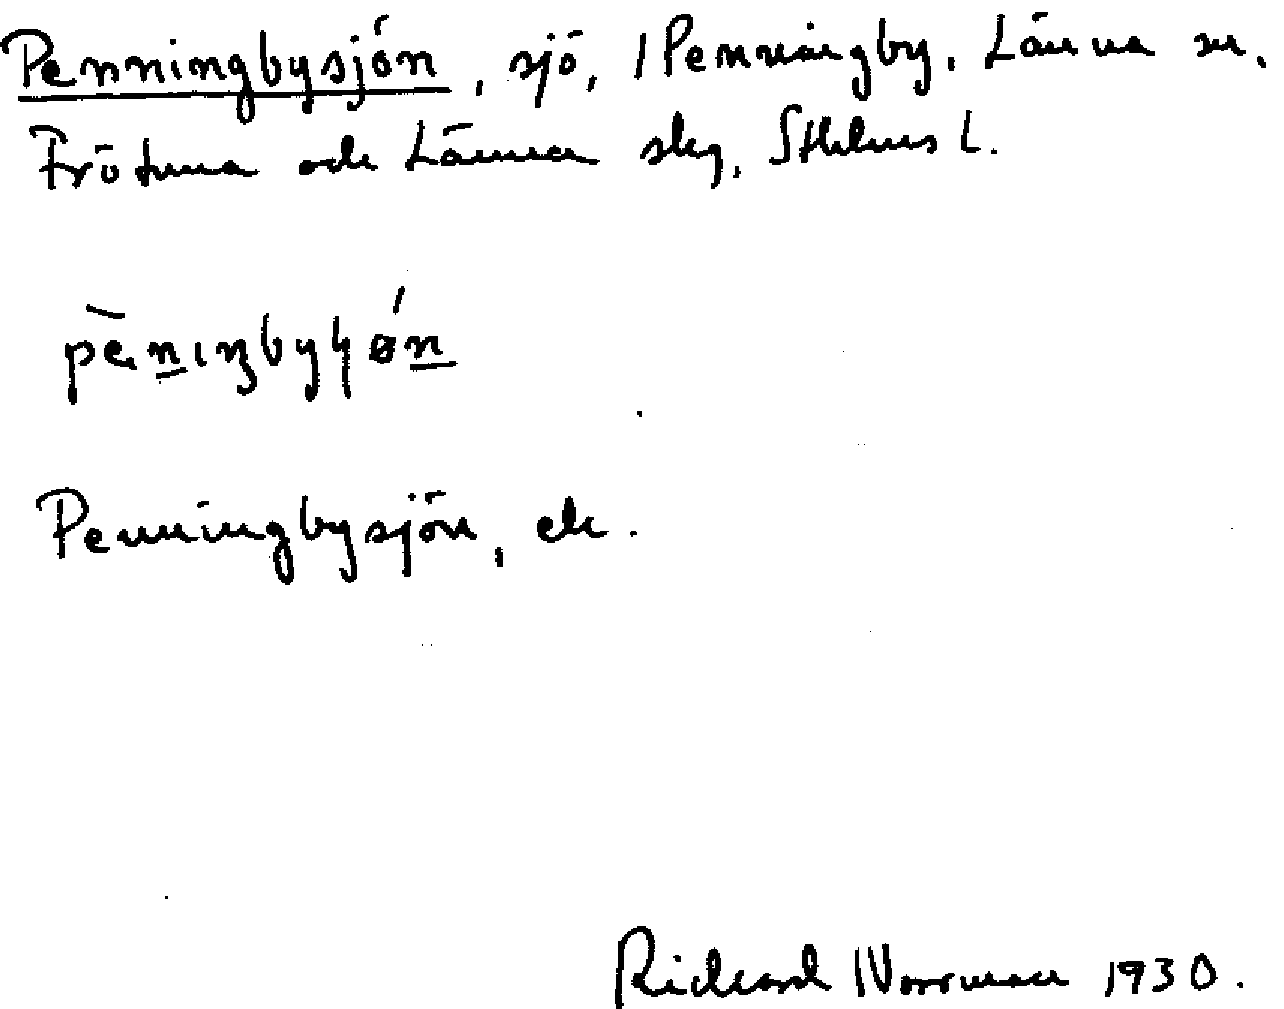 Penningbysjön, sjö, /Penningby, Länna sn.
Frötuna och Länna skg, Sthlms L.
pènıŋbyɧǿn
Penningbysjön, ek.
Richard Norrman 1930.